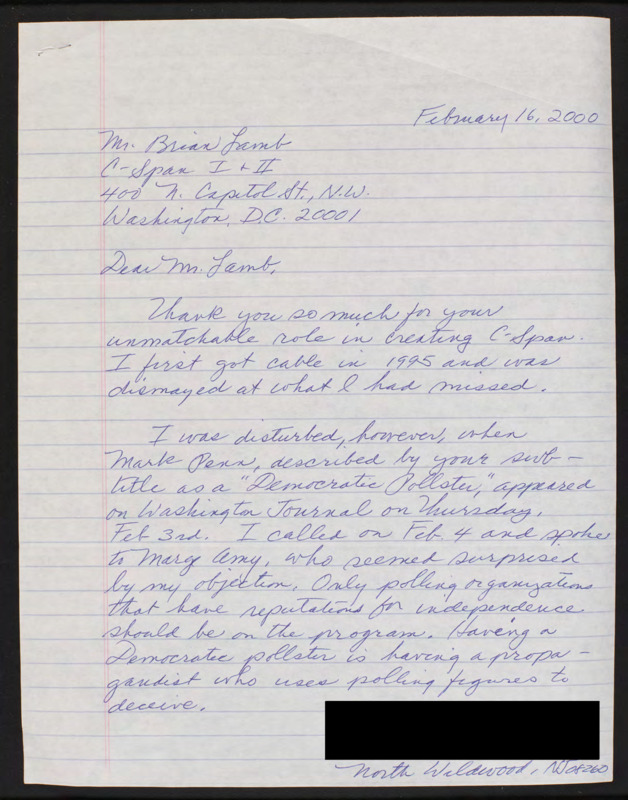 February 16, 2000
Mr. Brian Lamb
C-Span I + II
400 N. Capitol St., N.W.
Washington, D.C. 20001
Dear Mr. Lamb,
Thank you so much for your
unmatchable role in creating C-Span.
I first got cable in 1995 and was
dismayed at what I had missed.
I was disturbed, however, when
Mark Penn, described by your sub-
title as a "Democratic Pollster," appeared
on Washington Journal on Thursday,
Feb 3rd. I called on Feb. 4 and spoke
to Marge Amy, who seemed surprised
by my objection. Only polling organizations
that have reputations for independence
should be on the program. Having a
Democratic pollster is having a propa-
gandist who uses polling figures to
deceive.
North Wildwood, NJ 08260